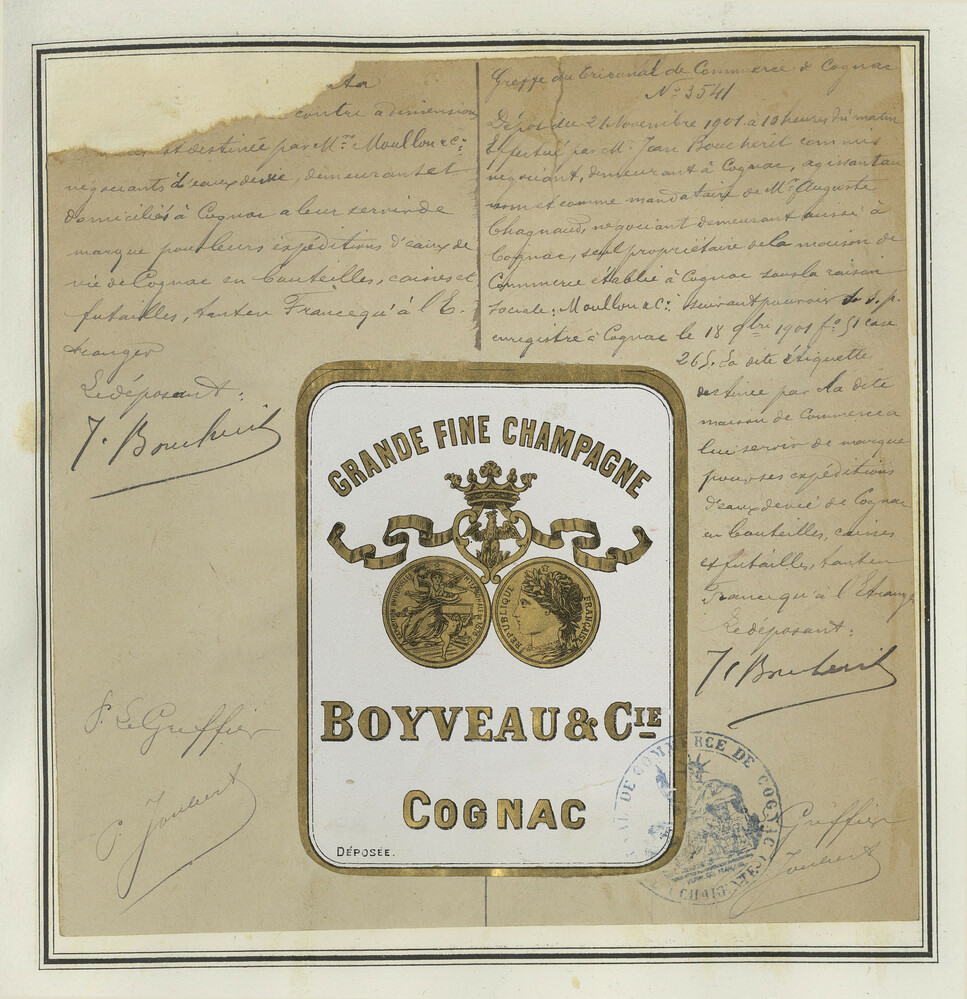 La
contre a dimension
est destinée par Mrs Moullon & Cie
négociants d'eaux de vie, demeurant et
domiciliés à Cognac a leur servir de
marque pour leurs expéditions d'eaux de
vie de Cognac en bouteilles, caisses et
futailles, tant en France qu'à l'E-
tranger
Le déposant:
J. Boucherit
P. Le Greffier
P. Joubert
Greffe du Tribunal de Commerce de Cognac
No 3541
Dépôt du 21 Novembre 1901 à 10 heures du matin
Effectué par Mr Jean Boucherit commis
négociant, demeurant à Cognac, agissant au
nom et comme mandataire de Mr Auguste
Chagnaud, négociant demeurant aussi à
Cognac, seul propriétaire de la maison de
Commerce établie à Cognac sous la raison
Sociale: Moullon & Cie suivant pouvoir s. s. p.
enregistré à Cognac le 18 9bre 1901 fo 51 case
265. La dite étiquette
destinée par la dite
maison de Commerce a
lui servir de marque
pour ses expéditions
d'eaux de vie de Cognac
en bouteilles, caisses
et futailles, tant en
France qu'à l'Etranger
Le déposant:
J. Boucherit
Greffier
Joubert
GRANDE FINE CHAMPAGNE
EXPOSITION UNIVERSELLE INTERNATIONALE DE 1878
REPUBLIQUE FRANÇAISE
BOYVEAU & CIE
COGNAC
DÉPOSÉE.
DE COMMERCE DE COGNAC (CHARENTE)